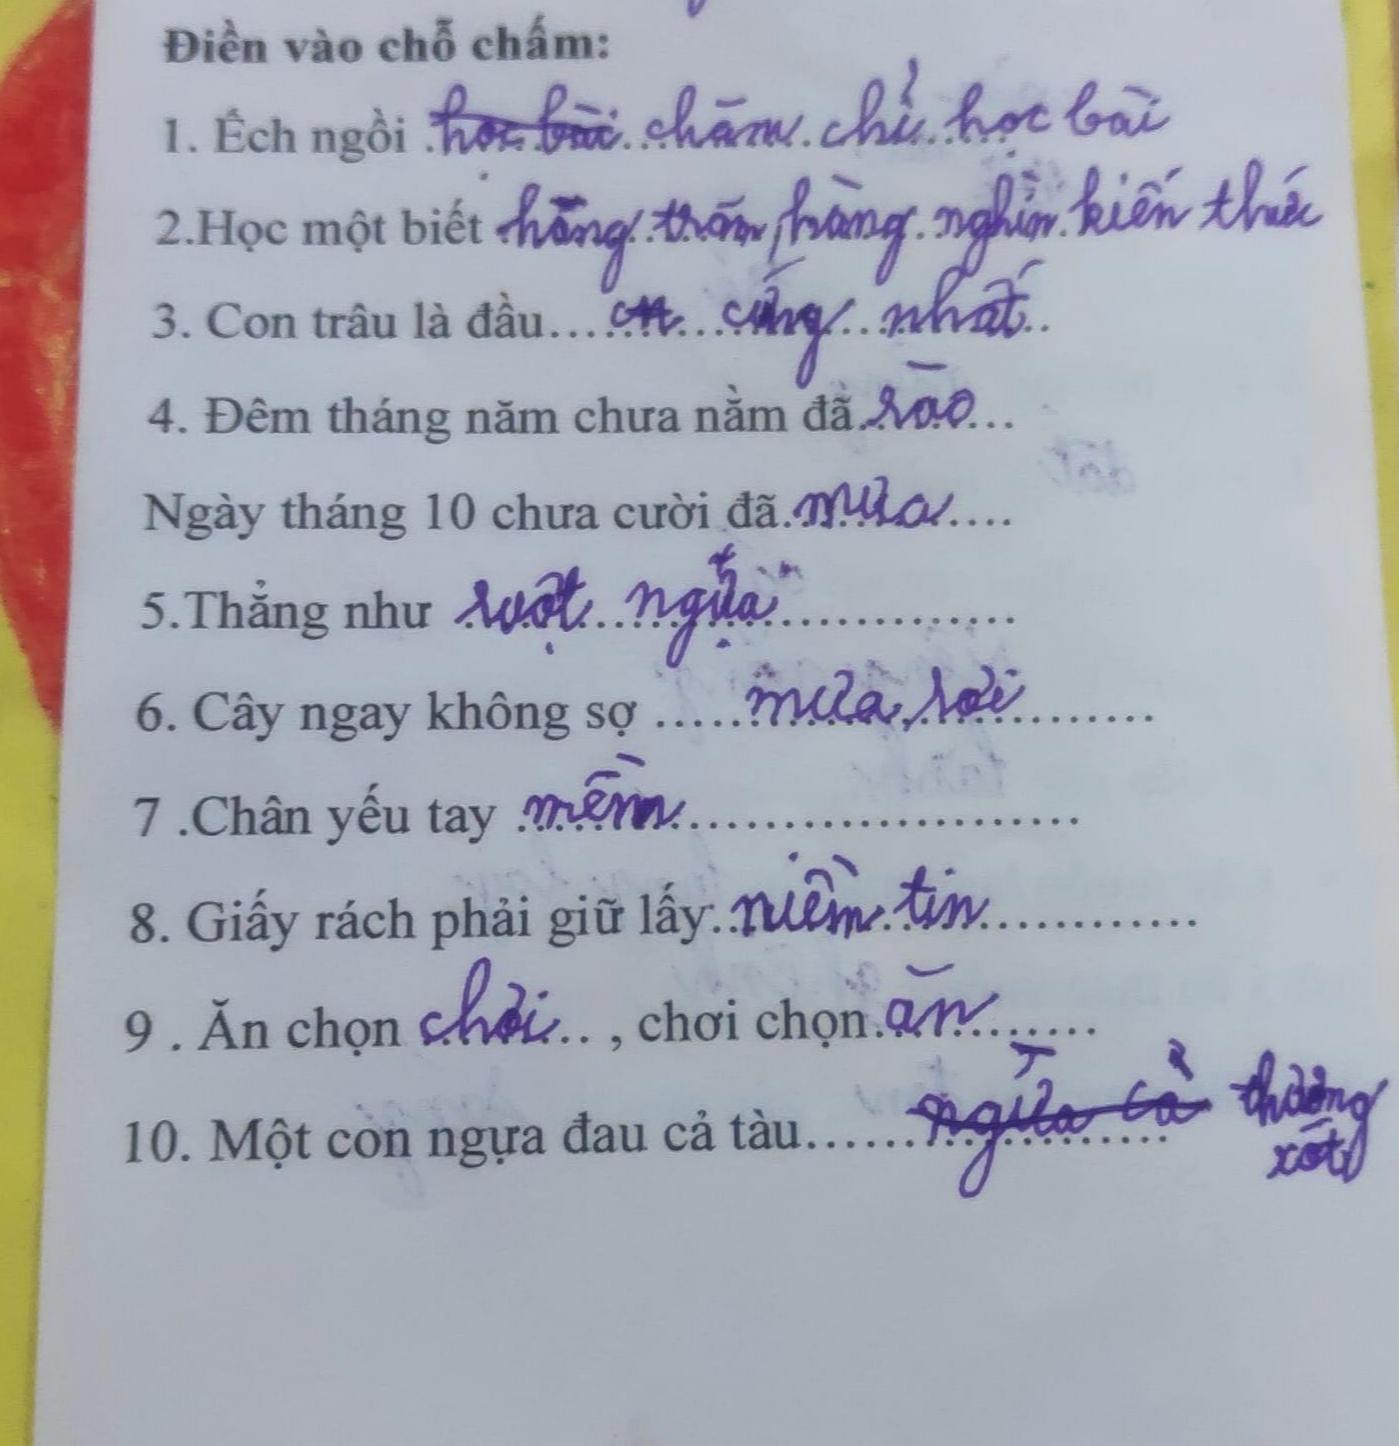 Điền vào chỗ chấm:
1. Ếch ngồi học bài chăm chỉ học bài
2.Học một biết hàng trăm, hàng nghìn kiến thức
3. Con trâu là đầu......... cứng nhất..
4. Đêm tháng năm chưa nằm đã rào...
Ngày tháng 10 chưa cười đã.mưa....
5.Thẳng như ruột ngựa..............
6. Cây ngay không sợ .....mưa, rơi...........
7 .Chân yếu tay mềm.....................
8. Giấy rách phải giữ lấy..niềm tin............
9 . Ăn chọn chơi.. , chơi chọn.ăn.......
10. Một con ngựa đau cả tàu......ngựa cả thương
xót